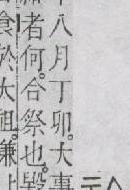 八月丁卯。大事
者何。合祭也。毀
食於大祖。兼